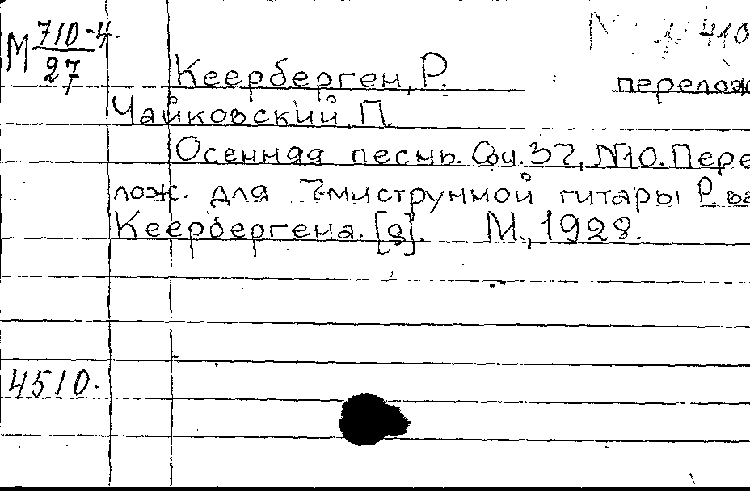 М 710-4.
27
410
Кеерберген, Р.
перелож
Чайковский, П.
Осенная песнь. Соч. 37, №10. Пере
лож. для 7миструнной гитары Р. ва
Кеербергена. [д]. М., 1928.
4510.